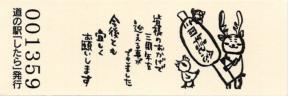 001359
道の駅「したら」発行
三周年記念
皆様のおかげで
三周年を
迎える事が
できました
今後とも
宜しく
お願いします